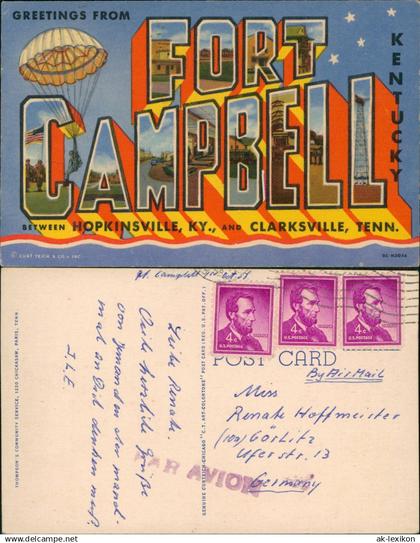 GREETINGS FROM
FORT
CAMPBELL
KENTUCKY
BETWEEN HOPKINSVILLE, KY., AND CLARKSVILLE, TENN.
© CURT TEICH & CO., INC.
Ft. Campbell
4¢
U.S. POSTAGE
4¢
U.S. POSTAGE
4¢
U.S. POSTAGE
POST CARD
By Air Mail
THOMPSON'S COMMUNITY SERVICE, 1220 CHICKASAW, PARIS, TENN
GENUINE CURTEICH-CHICAGO "C.T. ART-COLORTONE" POST CARD (REG. U.S. PAT. OFF.)
Liebe Renate.
Viele herzliche Grüße
von jemanden der manch-
mal an Dich denken muß.
J.L.E.
PAR AVION
Miss
Renate Hoffmeister
(10b) Görlitz
Uferstr. 13
Germany
© ak-lexikon.com